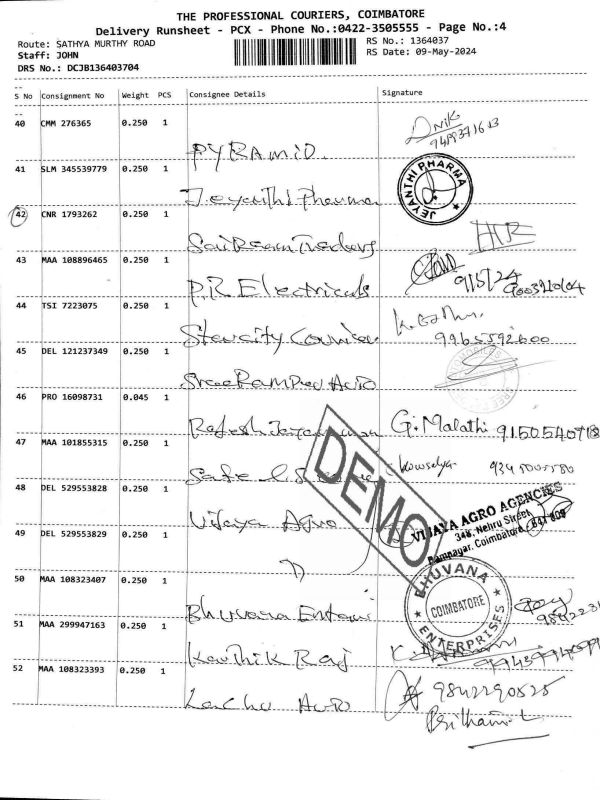 THE PROFESSIONAL COURIERS, COIMBATORE
Delivery Runsheet - PCX - Phone No.:0422-3505555 - Page No.:4
Route: SATHYA MURTHY ROAD
RS No.: 1364037
Staff: JOHN
RS Date: 09-May-2024
DRS No.: DCJB136403704
S No Consignment No Weight PCS Consignee Details Signature
40 CMM 276365 0.250 1
PYRAMID.
41 SLM 345539779 0.250 1
Jeyanthi Pharma
JEYANTHI PHARMA
42 CNR 1793262 0.250 1
Sai Ream Traders
43 MAA 108896465 0.250 1
P.R Electricals
9/5/24
44 TSI 7223075 0.250 1
Starcity Courier
9965592600
45 DEL 121237349 0.250 1
Sree Ram Dev Auto
46 PRO 16098731 0.045 1
Rajesh
G. Malathi
47 MAA 101855315 0.250 1
Safe
Kowsalya
48 DEL 529553828 0.250 1
Vijaya Agro
VIJAYA AGRO AGENCIES
348, Nehru Street
Ramnagar, Coimbatore - 641 009
DEMO
49 DEL 529553829 0.250 1
50 MAA 108323407 0.250 1
Bhuvana
BHUVANA ENTERPRISES
COIMBATORE
51 MAA 299947163 0.250 1
Karthik Raj
52 MAA 108323393 0.250 1
Lachu Auto
9842290525